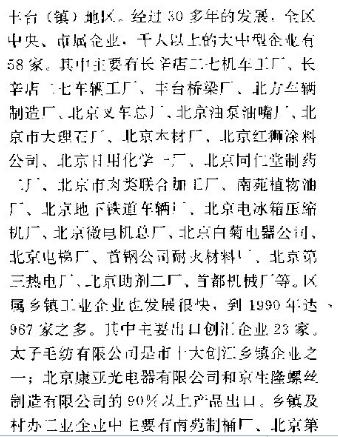 丰台（镇）地区。经过30多年的发展，全区
中央、市属企业，千人以上的大中型企业有
58家。其中主要有长辛店二七机车工厂、长
辛店二七车辆工厂、丰台桥梁厂、北方车辆
制造厂、北京叉车总厂、北京油泵油嘴厂、北
京市大理石厂、北京木材厂、北京红狮涂料
公司、北京日用化学一厂、北京同仁堂制药
二厂、北京市肉类联合加工厂、南苑植物油
厂、北京地下铁道车辆厂、北京电冰箱压缩
机厂、北京微电机总厂、北京白菊电器公司、
北京电梯厂、首钢公司耐火材料厂、北京第
三热电厂、北京助剂二厂、首都机械厂等。区
属乡镇工业企业也发展很快，到1990年达
967家之多。其中主要出口创汇企业23家。
太子毛纺有限公司是市十大创汇乡镇企业之
一；北京康亚光电器有限公司和京生隆螺丝
制造有限公司的90%以上产品出口。乡镇及
村办工业企业中主要有南苑制桶厂、北京第